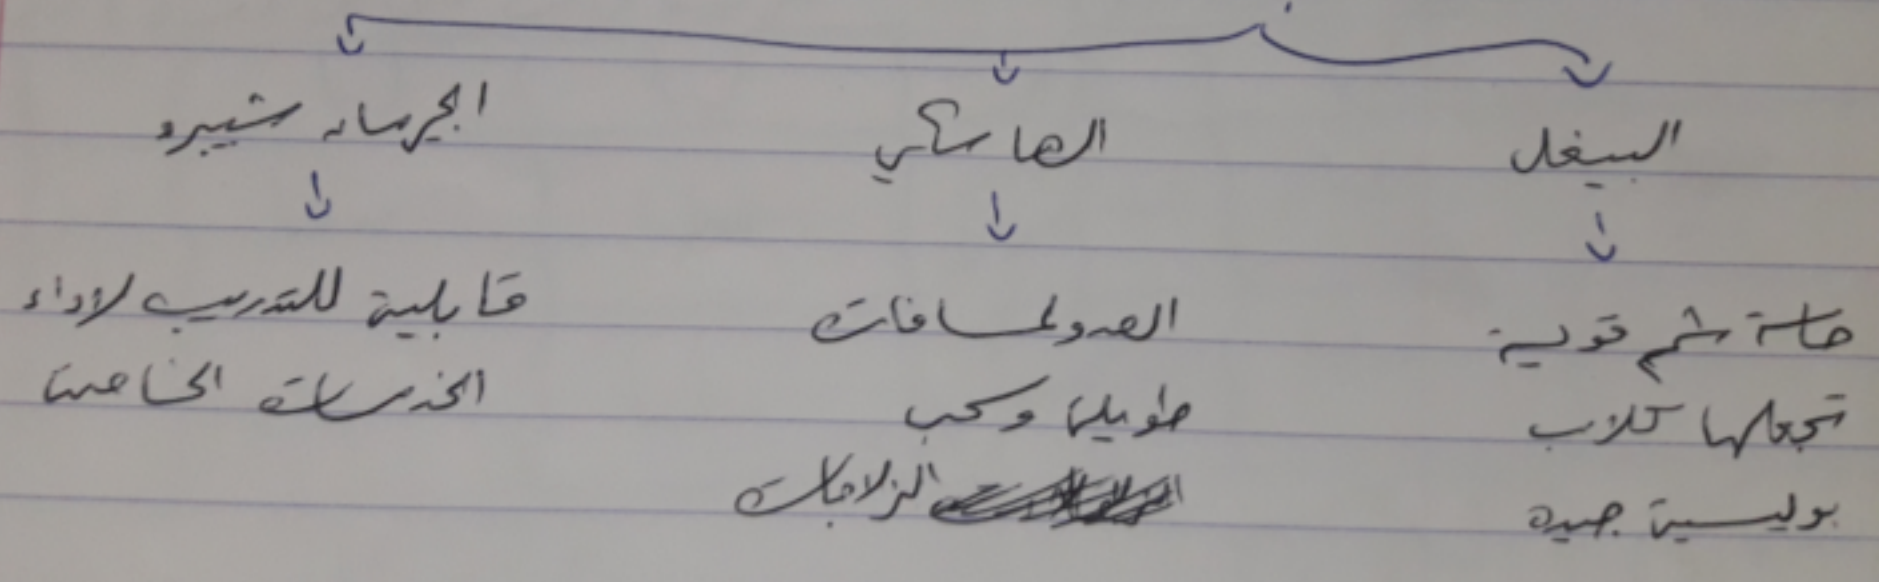 البيغل
حاسة شم قوية
تجعلها كلاب
بوليسية جيده
الهاسكي
العدو لمسافات
طويلة وسحب
الزلاجات
الجيرمان شيبرد
قابلية للتدريب لاداء
الخدمات الخاصة